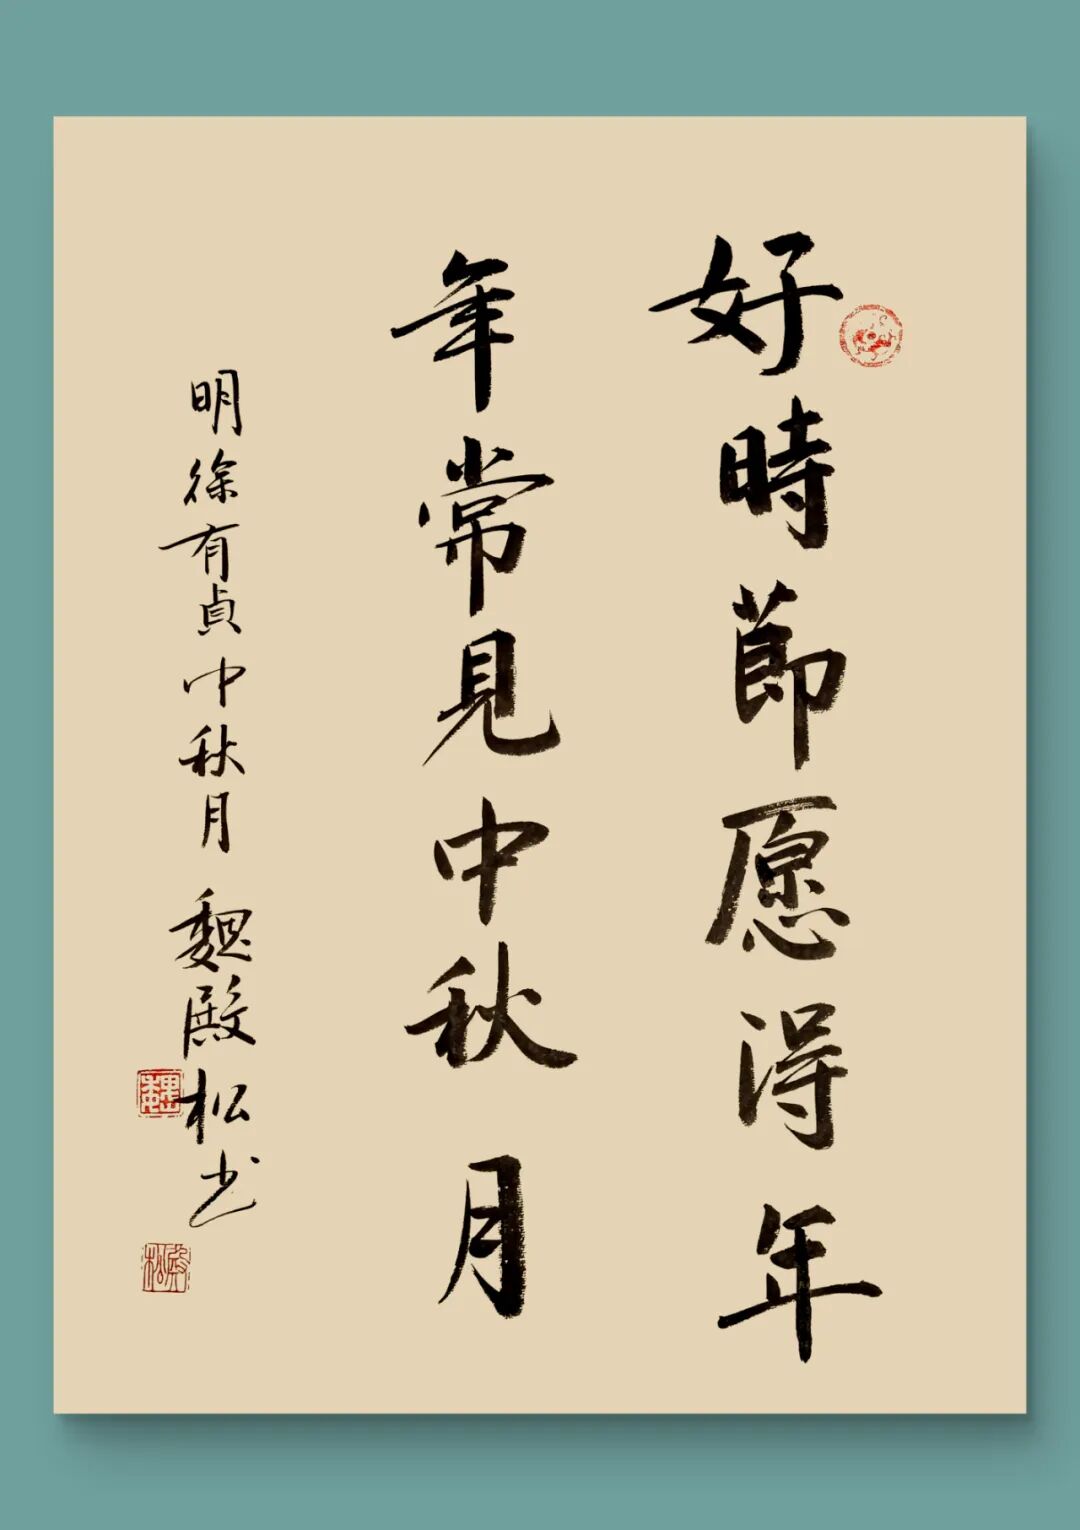 好時節愿得年
年常見中秋月
明徐有貞中秋月 魏殿松书
魏
殿松